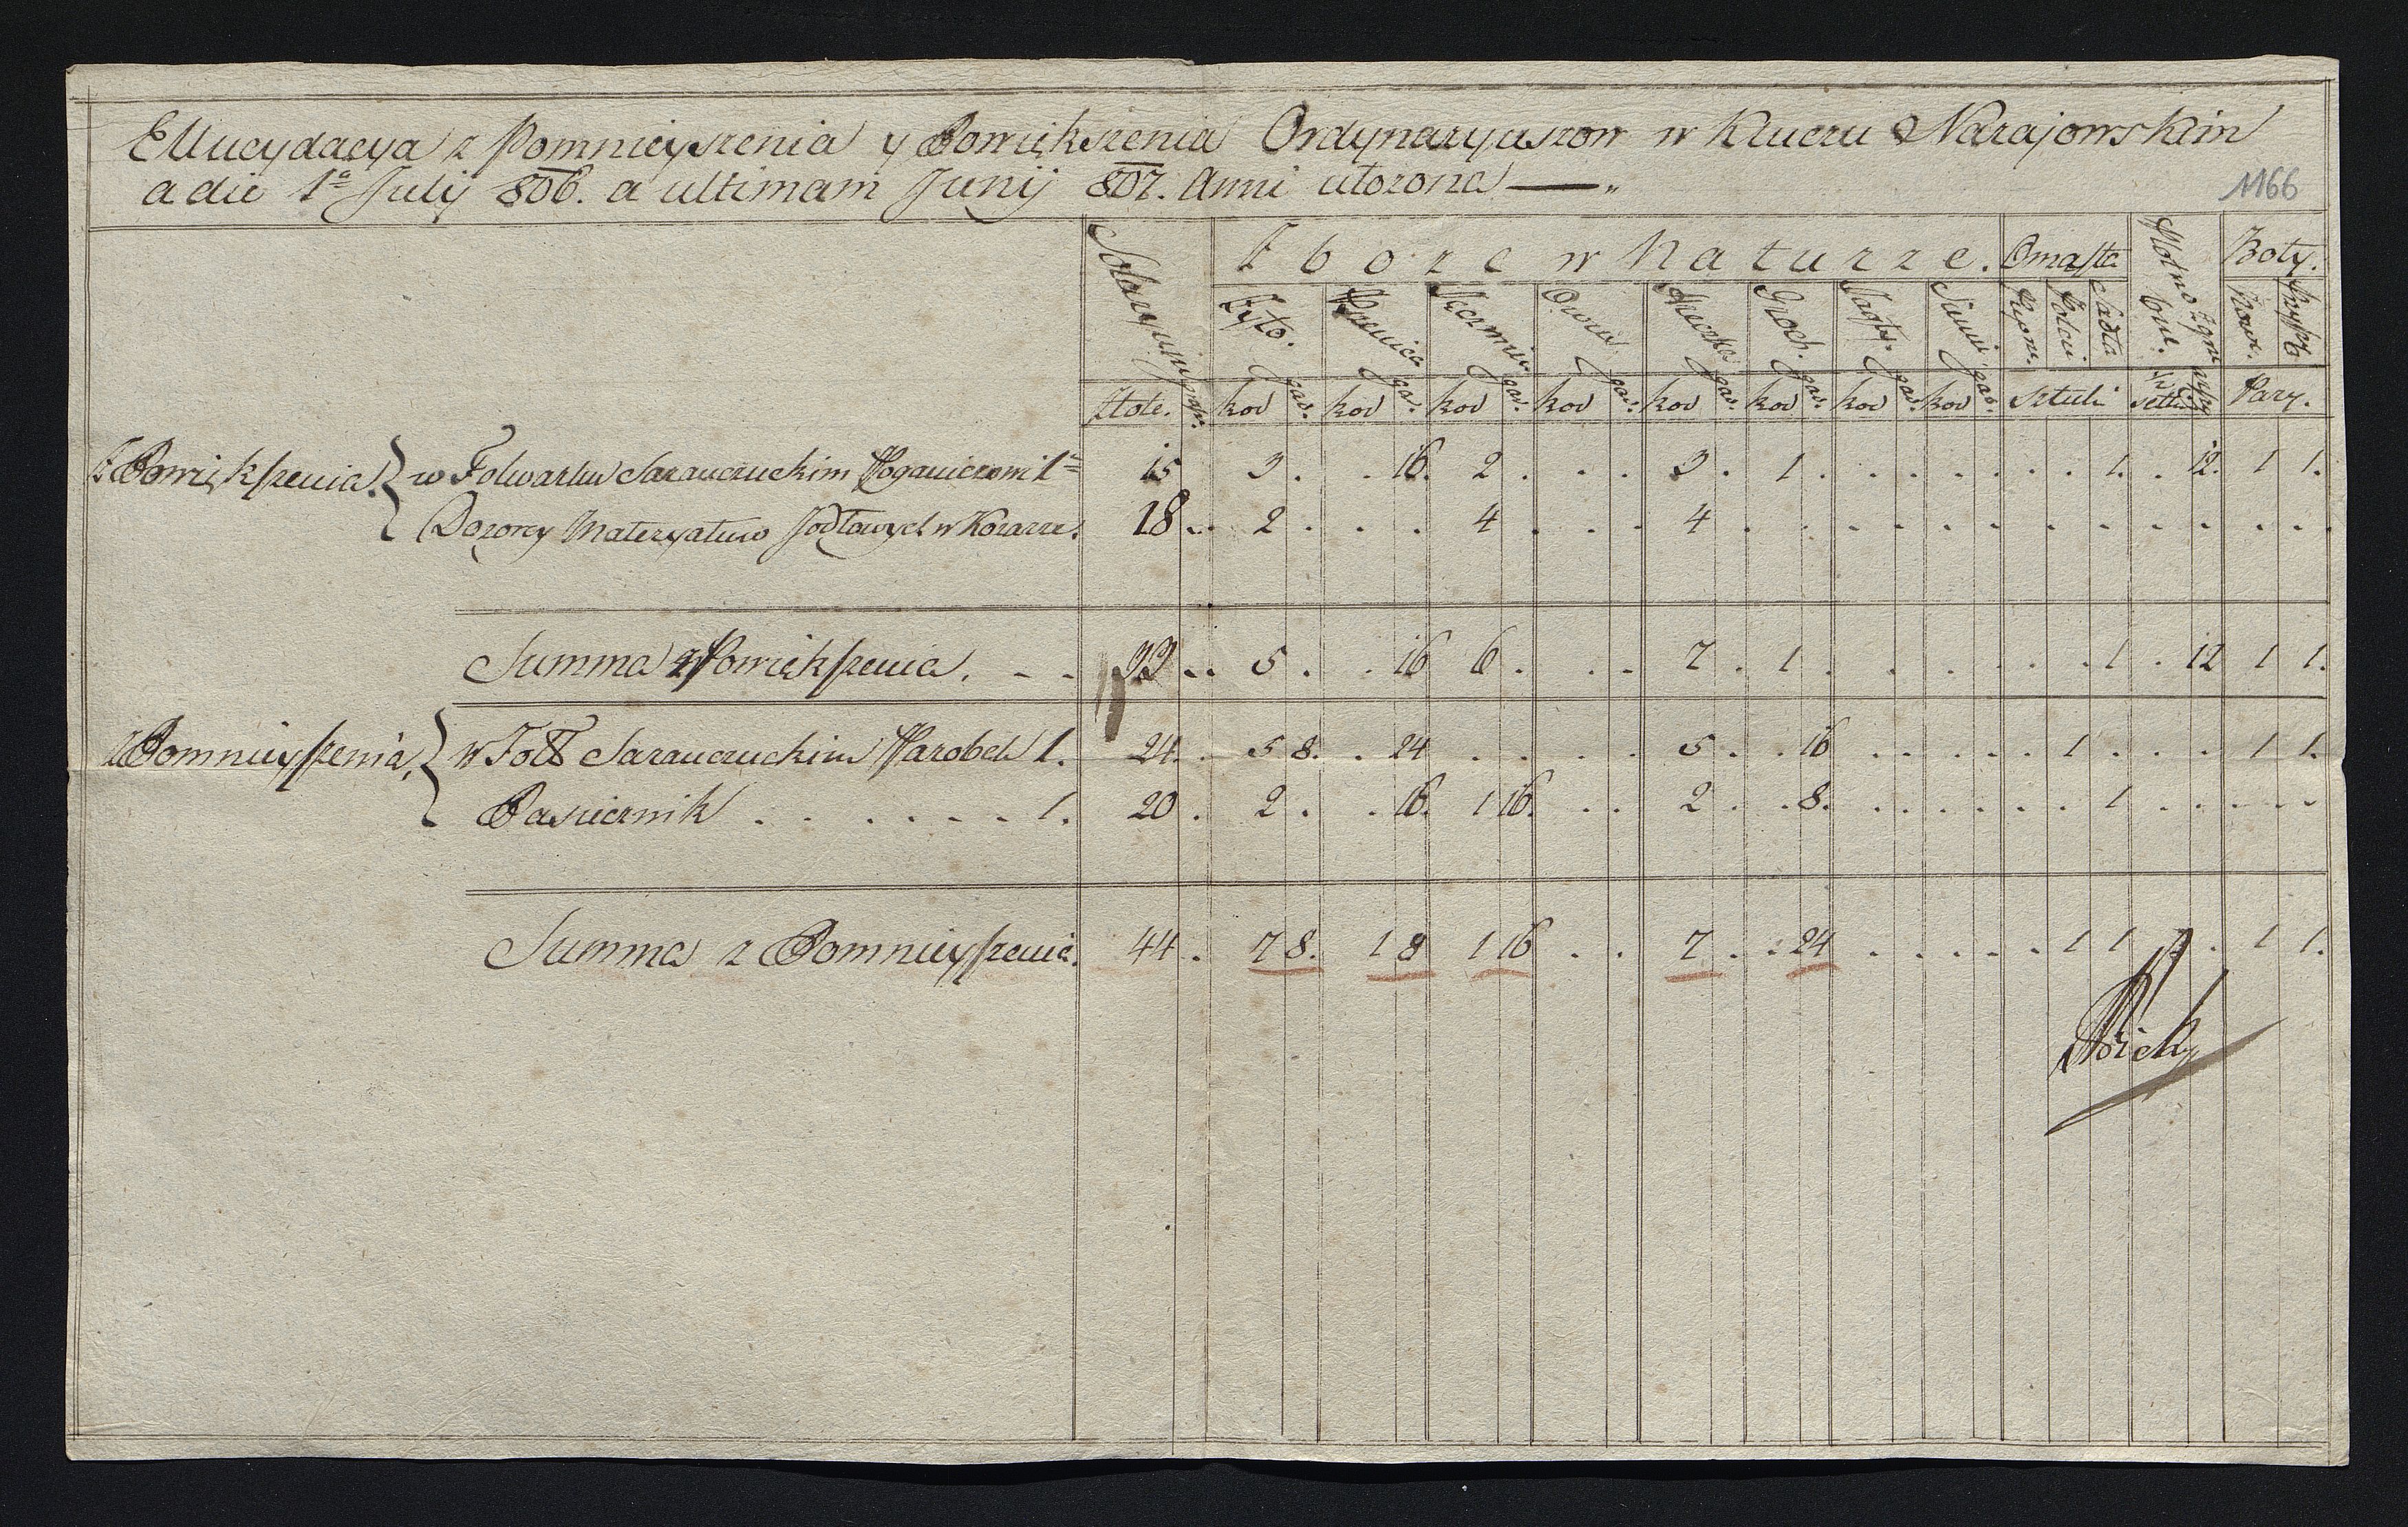 Ellucydacya z Pomnieyszenia y Powiększenia Ordynaryuszow w Kluczu Narajowskim
a die 1ª Julij 806. a ultimam Junij 807. Anni ułożona —„
1166
Solaryum Zboze w Naturze. Omasta Płotno zgrz Boty.
Żyto. Pszenica Jęczmień Owies Hreczka Groch. Jagły. Siemie Połcie Sadła Nowe. Przyszwy
złote. kor gar. kor gar. kor gar. kor gar. kor gar. kor gar. kor gar. kor gar. Sztuki Pary.
z Powiękſzenia. w Folwarku Saranczuckim Poganiczowi 1 15 3 . . 16. 2 . . . 3 . 1 . . . . . . . 1. . 12. 1 1.
Dozorcy Materyałow Jodłowych w Kozarze. 18 .. 2 . . . 4 . . . 4 . . . . . . . . . . . . . . .
Summa z Powiękſzenia. - - 33 .. 5 . . 16 6 . . . 7 . 1 . . . . . . 1 . 12 1 1.
z Pomnieyſzenia, w Fol: Saranczuckim Parobek 1. 24. . 5 8. . 24 . . . . 5 . . 16 . . . . . 1 . . . 1 1.
Pasiecznik . . . . . . 1. 20 . 2 . . 16. 1 16. . . 2 . . 8. . . . . . . 1 . . . . .
Summa z Pomnieyſzenia. 44 . 7 8. 1 8 1 16 . . 7 . . 24 . . . . . 1 1 . . 1 1.